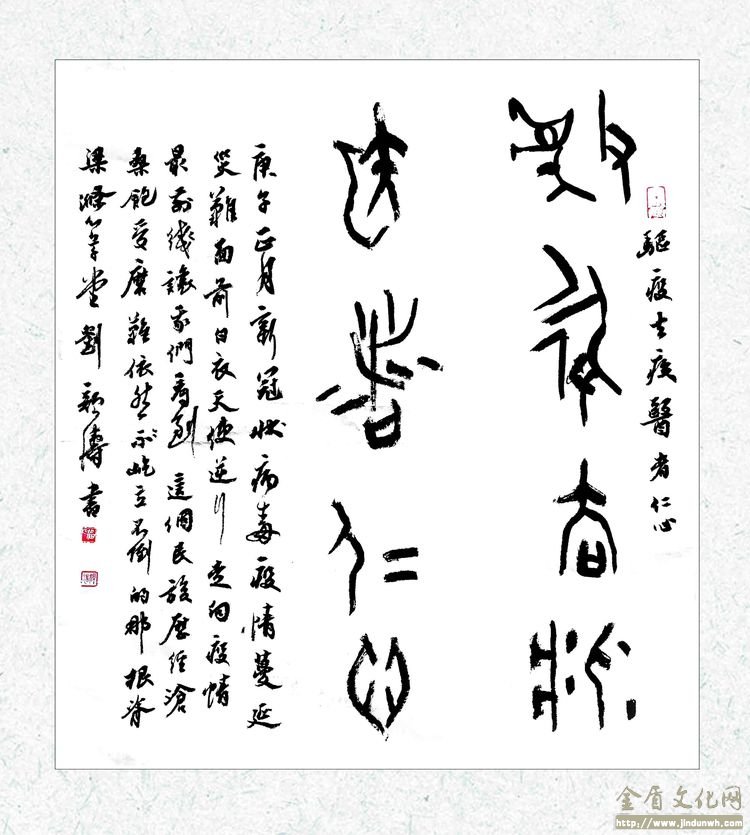 驅疫去疾醫者仁心
驅疫去疾
醫者仁心
庚子正月新冠狀病毒疫情蔓延
災難面前白衣天使逆行走向疫情
最前綫讓我們看到這個民族歷經滄
桑飽受磨難依然屹立不倒的那根脊
梁 劉 濤書
金盾文化网
http://www.jindunwh.com